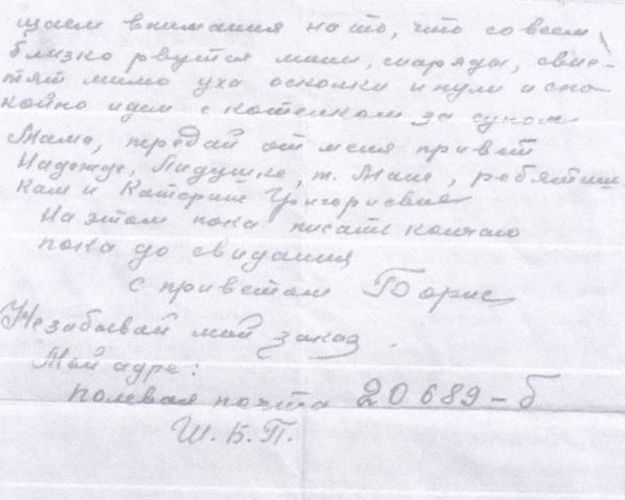 щаем внимания на то, что совсем
близко рвутся мины, снаряды, свис-
тят мимо уха осколки и пули и спо-
койно идем с котелком за супом
Мама, передай от меня привет
Надежде, Лидушке, т. Мане, ребятиш
кам и Катерине Григориевне
На этом пока писать кончаю
пока до свидания
с приветом Борис
Незабывай мой заказ.
Мой адрс:
полевая почта 20689-Б
Ш.Б.П.